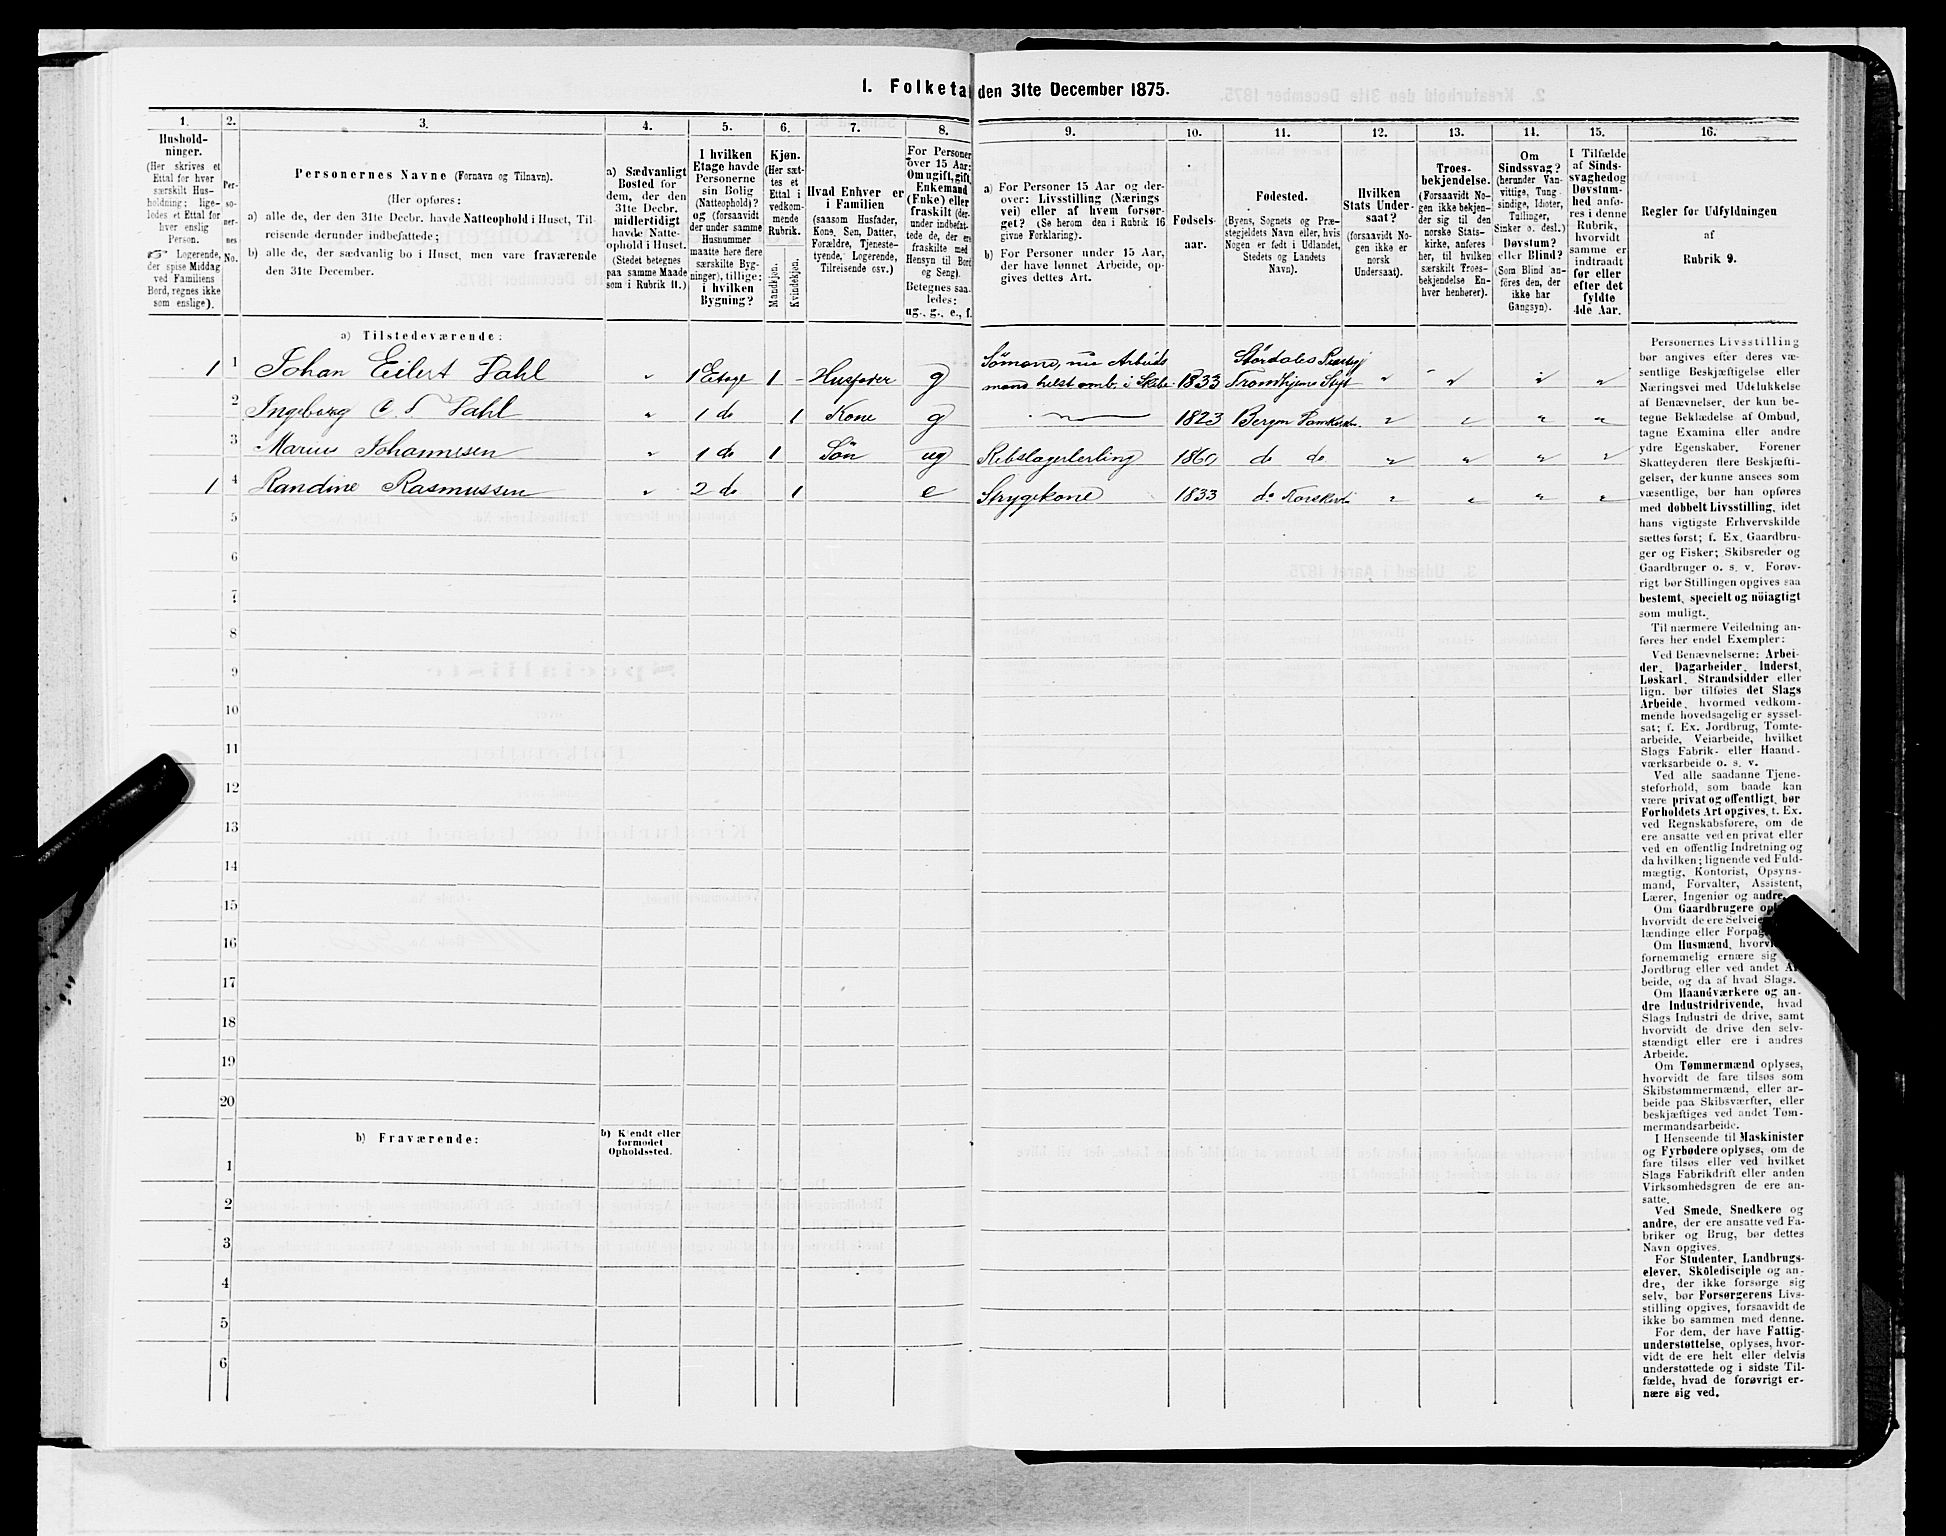 1. Folketa den 31te December 1875.
1.
Hushold-
ninger.
(Her skrives et
Ettal for hver
særskilt Hus-
holdning; lige-
ledes et Ettal for
hver enslig
Person.
☞ Logerende,
der spise Middag
ved Familiens
Bord, regnes ikke
som enslige).
2.
Per-
so-
ner-
nes
No.
3.
Personernes Navne (Fornavn og Tilnavn).
(Her opføres:
a) alle de, der den 31te Decbr. havde Natteophold i Huset, Til-
reisende derunder indbefattede;
b) alle de, der sædvanlig bo i Huset, men vare fraværende
den 31te December.
4.
a) Sædvanligt
Bosted for
dem, der den
31te Decbr.
midlertidigt
havde Natte-
ophold i Huset.
(Stedet betegnes
paa samme Maade
som i Rubrik 11.)
5.
I hvilken
Etage havde
Personerne
sin Bolig
(Natteophold)?
og (forsaavidt
der under samme
Husnummer
maatte høre flere
særskilte Byg-
ninger), tillige:
i hvilken
Bygning?
6.
Kjøn.
(Her sæt-
tes et
Ettal i
vedkom-
mende
Rubrik.
Mandkjøn.
Kvindekjøn.
7.
Hvad Enhver er
i Familien
(saasom Husfader,
Kone, Søn, Datter,
Forældre, Tjeneste-
tyende, Logerende,
Tilreisende osv.)
8.
For Personer
over 15 Aar:
Om ugift, gift,
Enkemand
(Enke) eller
fraskilt (der-
under indbefat-
tede de, der ere
fraskilte med
Hensyn til Bord
og Seng).
Betegnes saa-
ledes:
ug., g., e., f.
9.
a) For Personer 15 Aar og der-
over: Livsstilling (Nærings
vei) eller af hvem forsør-
get? (Se herom den i Rubrik 16
givne Forklaring).
b) For Personer under 15 Aar,
der have lønnet Arbeide, op-
gives dettes Art.
10.
Fødsels-
aar.
11.
Fødested.
(Byens, Sognets og Præ-
stegjeldets Navn eller, hvis
Nogen er født i Udlandet,
Stedets og Landets
Navn).
12.
Hvilken
Stats Under-
saat?
(forsaavidt No-
gen ikke er
norsk
Undersaat).
13.
Troes-
bekjendelse.
(Forsaavidt No-
gen ikke bekjen-
der sig til den
norske Stats-
kirke, anføres
her, til hvilken
særskilt Troes-
bekjendelse En-
hver henhører).
14.
Om
Sindssvag?
(herunder Van-
vittige, Tung-
sindige, Idioter,
Tullinger,
Sinker o. desl.)
Døvstum?
eller Blind?
(Som Blind an-
føres den, der
ikke har
Gangsyn).
15.
I Tilfælde
af Sinds-
svaghed og
Døvstum-
hed anfø-
res i denne
Rubrik,
hvorvidt
samme er
indtraadt
før eller
efter det
fyldte
4de Aar.
16.
Regler for Udfyldningen
af
Rubrik 9.
a) Tilstedeværende:
1 1 Johan Eilert Dahl " 1 Etage 1 - Husfader g Sømand, nu Arbeids Størdalens Præstegj
mand helst omb. i Skibe 1833 Trondhjems Stift " " " "
2 Ingeborg C. T. Dahl " 1 do 1 Kone g 1823 Bergen Domkirke " " " "
3 Marius Johannesen " 1 do 1 Søn ug Rebslagerlerling 1860 do do " " " "
1 4 Randine Rasmussen " 2 do 1 e Strygekone 1833 do Korskirke " " " "
5
6
7
8
9
10
11
12
13
14
15
16
17
18
19
20
b) Fraværende:
b) Kjendt eller
formodet
Opholdssted.
1
2
3
4
5
6
Personernes Livsstilling
bør angives efter deres væ-
sentlige Beskjæftigelse eller
Næringsvei med Udelukkelse
af Benævnelser, der kun be-
tegne Beklædelse af Ombud,
tagne Examina eller andre
ydre Egenskaber. Forener
Skatteyderen flere Beskjæfti-
gelser, der kunne ansees som
væsentlige, bør han opføres
med dobbelt Livsstilling, idet
hans vigtigste Erhvervskilde
sættes først; f. Ex. Gaardbru-
ger og Fisker; Skibsreder og
Gaardbruger o. s. v. Forøv-
rigt bør Stillingen opgives saa
bestemt, specielt og nöiagtigt
som muligt.
Til nærmere Veiledning an-
føres her endel Exempler:
Ved Benævnelserne: Arbei-
der, Dagarbeider, Inderst,
Løskarl, Strandsidder eller
lign. bør tilføies det Slags
Arbeide, hvormed vedkom-
mende hovedsagelig er syssel-
sat; f. Ex. Jordbrug, Tomte-
arbeide, Veiarbeide, hvilket
Slags Fabrik- eller Haand-
værksarbeide o. s. v.
Ved alle saadanne Tjene-
steforhold, som baade kan
være privat og offentligt, bør
Forholdets Art opgives, t. Ex.
ved Regnskabsførere, om de
ere ansatte ved en privat eller
ved en offentlig Indretning og
da hvilken; lignende ved Fuld-
mægtig, Kontorist, Opsyns-
mand, Forvalter, Assistent,
Lærer, Ingeniør og andre.
Om Gaardbrugere opl
hvorvidt de ere Selveie
lændinge eller Forpag
Om Husmænd, hvorvi
fornemmelig ernære sig
Jordbrug eller ved andet Ar
beide, og da af hvad Slags.
Om Haandværkere og an-
dre Industridrivende, hvad
Slags Industri de drive, samt
hvorvidt de drive den selv-
stændigt eller ere i andres
Arbeide.
Om Tømmermænd oplyses,
hvorvidt de fare tilsøs som
Skibstømmermænd, eller ar-
beide paa Skibsværfter, eller
beskjæftiges ved andet Tøm-
mermandsarbeide.
I Henseende til Maskinister
og Fyrbødere oplyses, om de
fare tilsøs eller ved hvilket
Slags Fabrikdrift eller anden
Virksomhedsgren de ere an-
satte.
Ved Smede, Snedkere og
andre, der ere ansatte ved Fa-
briker og Brug, bør dettes
Navn opgives.
For Studenter, Landbrugs-
elever, Skoledisciple og an-
dre, der ikke forsørge sig
selv, bør Forsørgerens Livs-
stilling opgives, forsaavidt de
ikke bo sammen med denne.
For dem, der have Fattig-
understøttelse, oplyses, hvor-
vidt de ere helt eller delvis
understøttede og i sidste Til-
fælde, hvad de forøvrigt er-
nære sig ved.